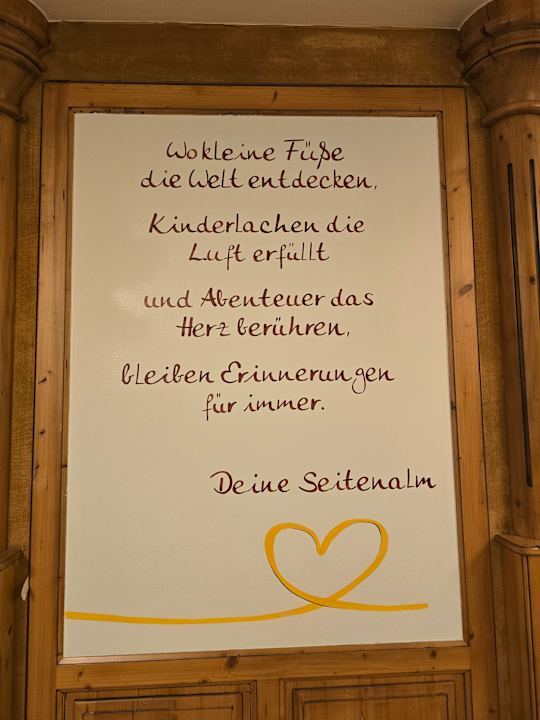 Wo kleine Füße
die Welt entdecken,
Kinderlachen die
Luft erfüllt
und Abenteuer das
Herz berühren,
bleiben Erinnerungen
für immer.
Deine Seitenalm